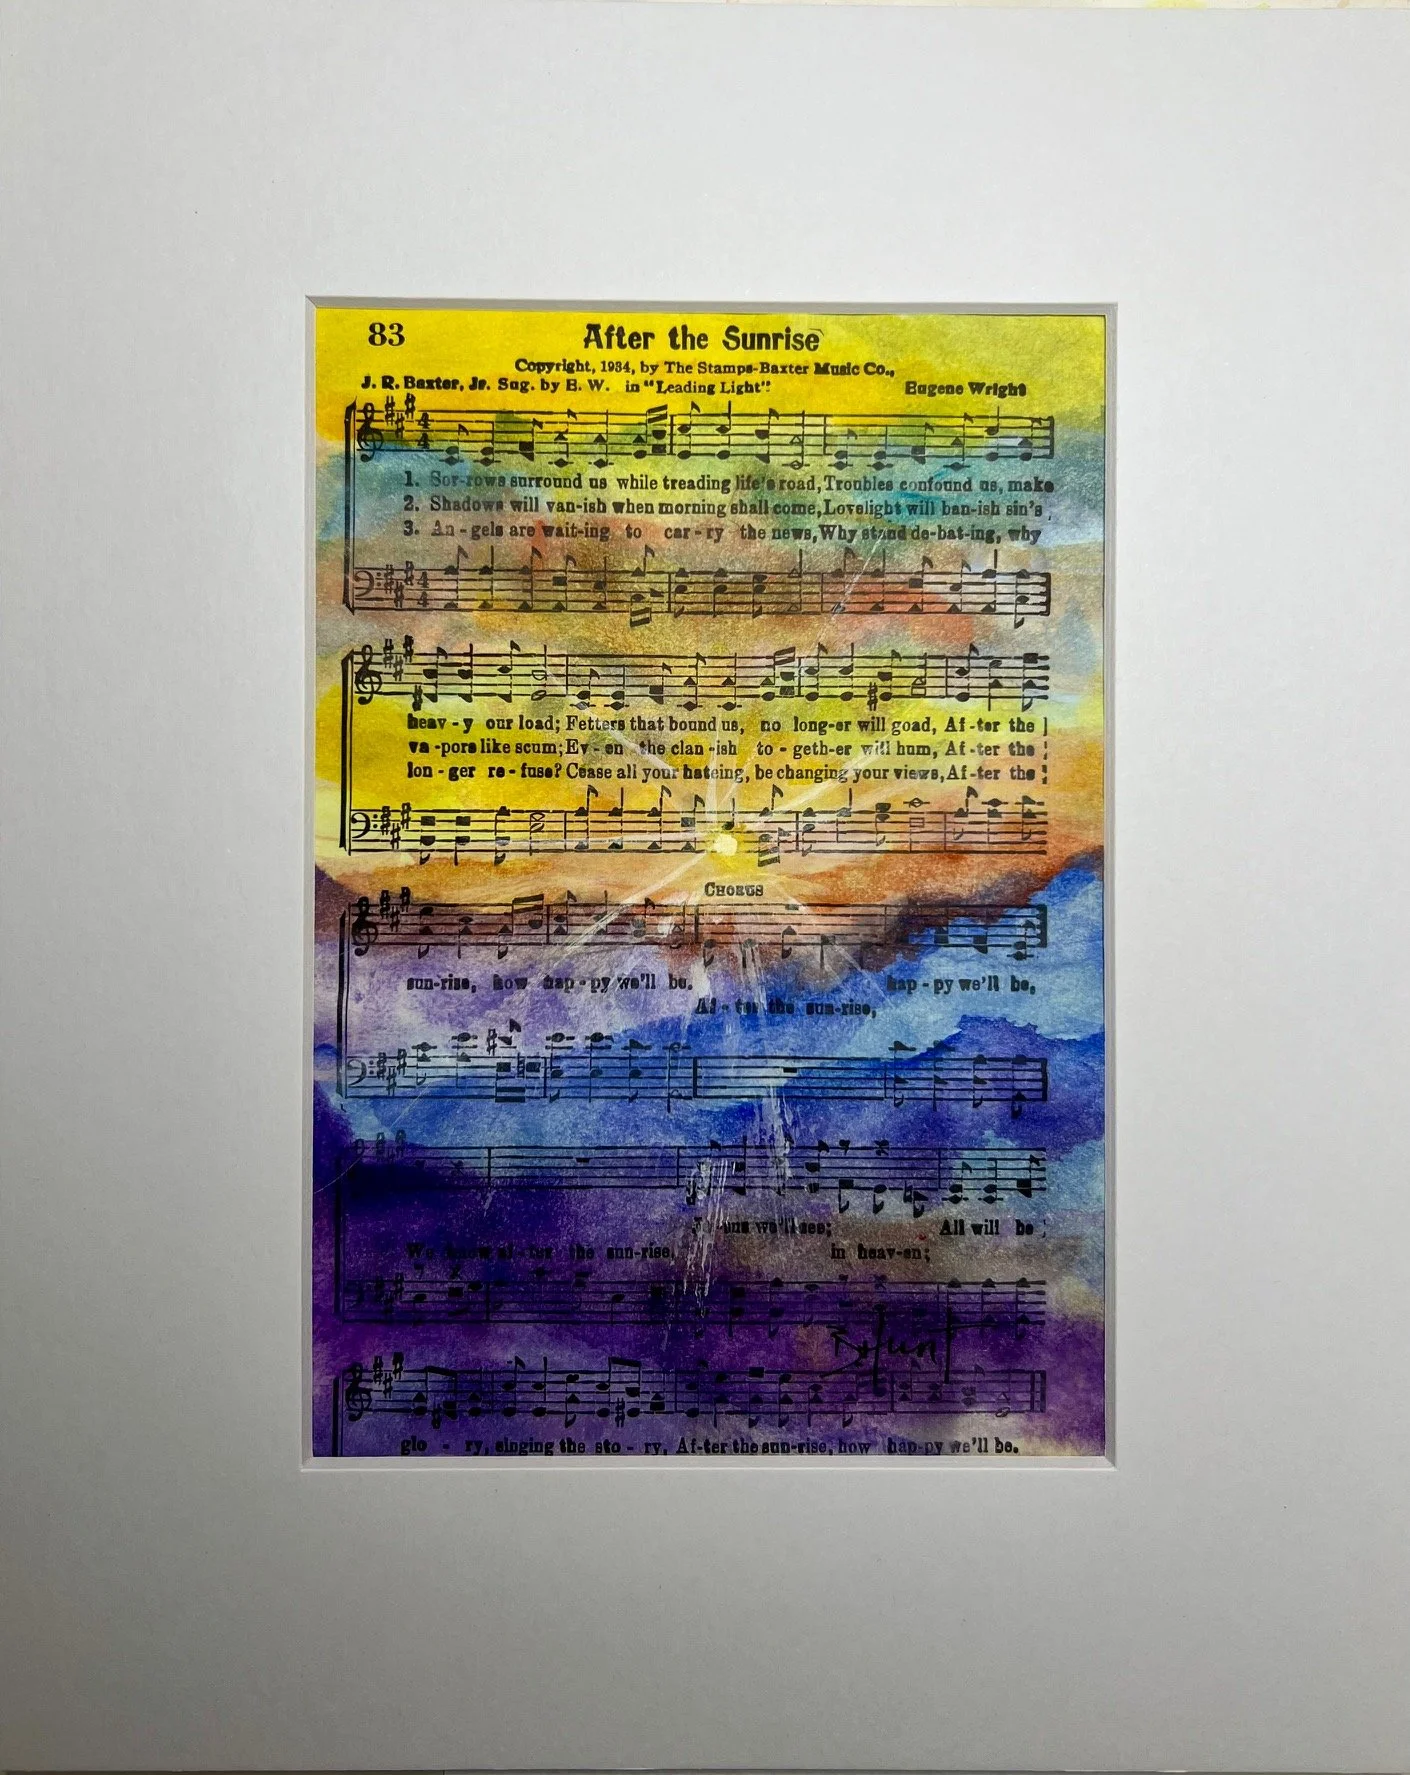 83
After the Sunrise
Copyright, 1934, by The Stamps-Baxter Music Co.,
J. R. Baxter, Jr. Sug. by E. W. in "Leading Light". Eugene Wright
1. Sor-rows surround us while treading life's road, Troubles confound us, make
2. Shadows will van-ish when morning shall come, Lovelight will ban-ish sin's
3. An-gels are wait-ing to car-ry the news, Why stand de-bat-ing, why
heav-y our load; Fetters that bound us, no long-er will goad, Af-ter the
va-pors like scum; Ev-en the clan-ish to-geth-er will hum, Af-ter the
lon-ger re-fuse? Cease all your hateing, be changing your views, Af-ter the
CHORUS
sun-rise, how hap-py we'll be. hap-py we'll be,
Af-ter the sun-rise,
we'll see; All will be
We know af-ter the sun-rise. in heav-en;
glo-ry, singing the sto-ry, Af-ter the sun-rise, how hap-py we'll be.